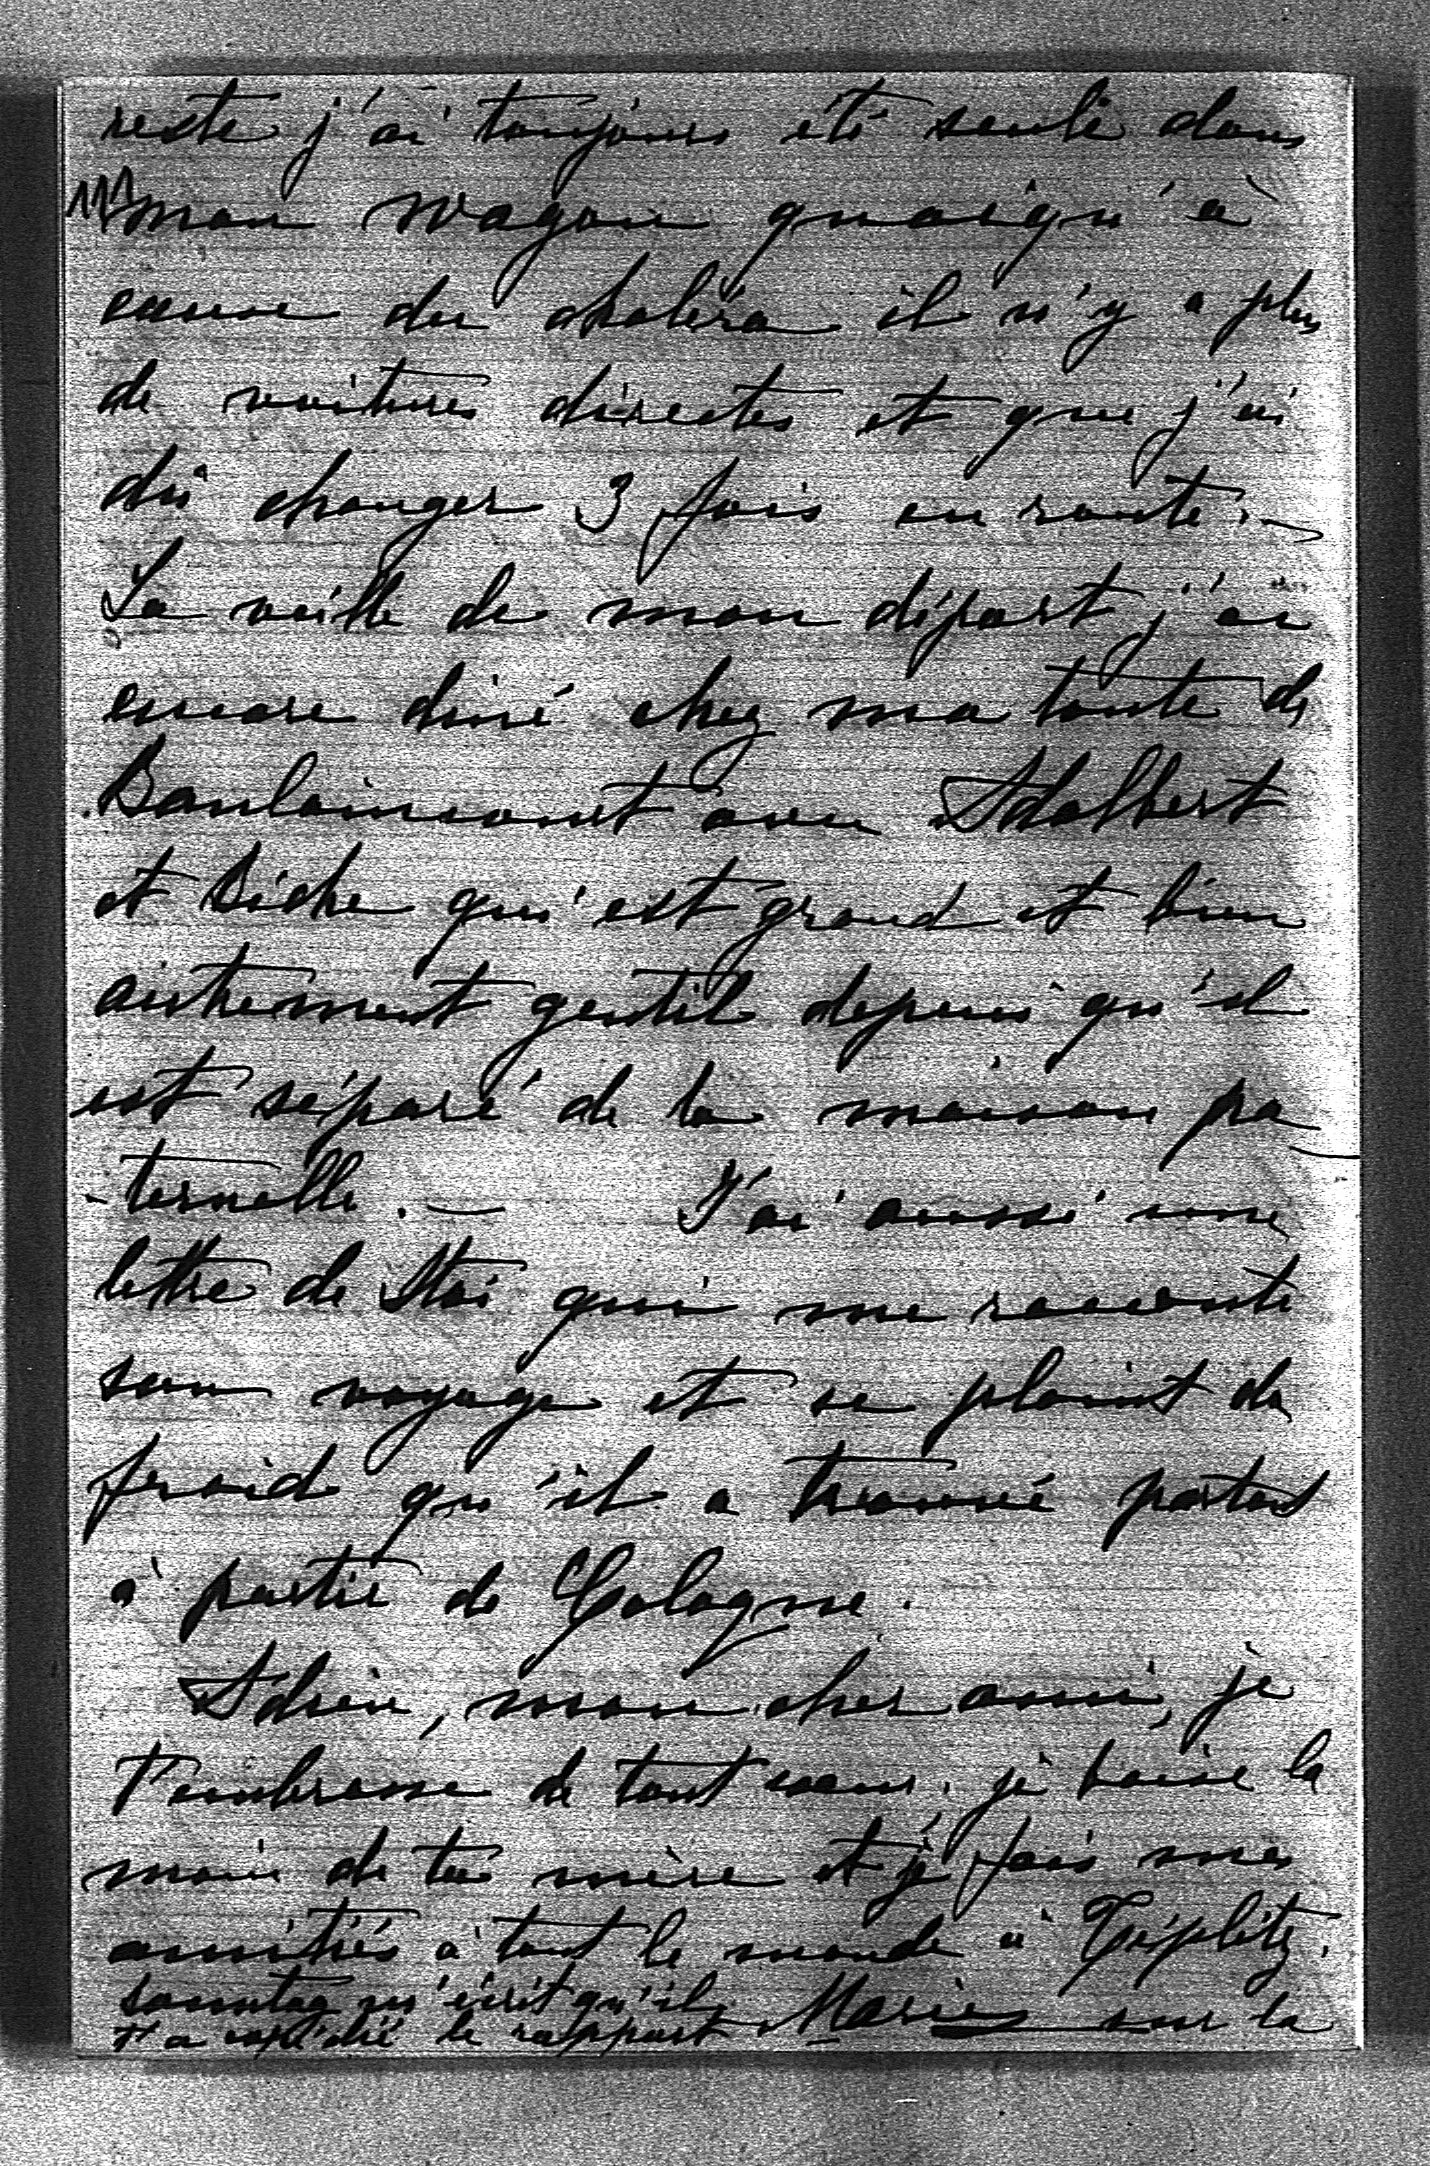 reste j'ai toujours été seule dans
mon wagon quoiqu'à
cause du choléra il n'y a plus
de voitures directes et que j'ai
dû changer 3 fois en route. —
La veille de mon départ j'ai
encore diné chez ma tante de
Baulaincourt avec Adalbert
et Biche qui est grand et bien
autrement gentil depuis qu'il
est séparé de la maison pa
-ternelle. — J'ai aussi une
lettre de Stoi qui me raconte
son voyage et se plaint du
froid qu'il a trouvé partout
à partir de Cologne.
Adieu, mon cher ami, je
t'embrasse de tout cœur. je baise la
main de ta mère et je fais mes
amitiés à tout le monde à Töplitz.
Sonntag m'écrit qu'il Marie sur la
t'a expédié le rapport